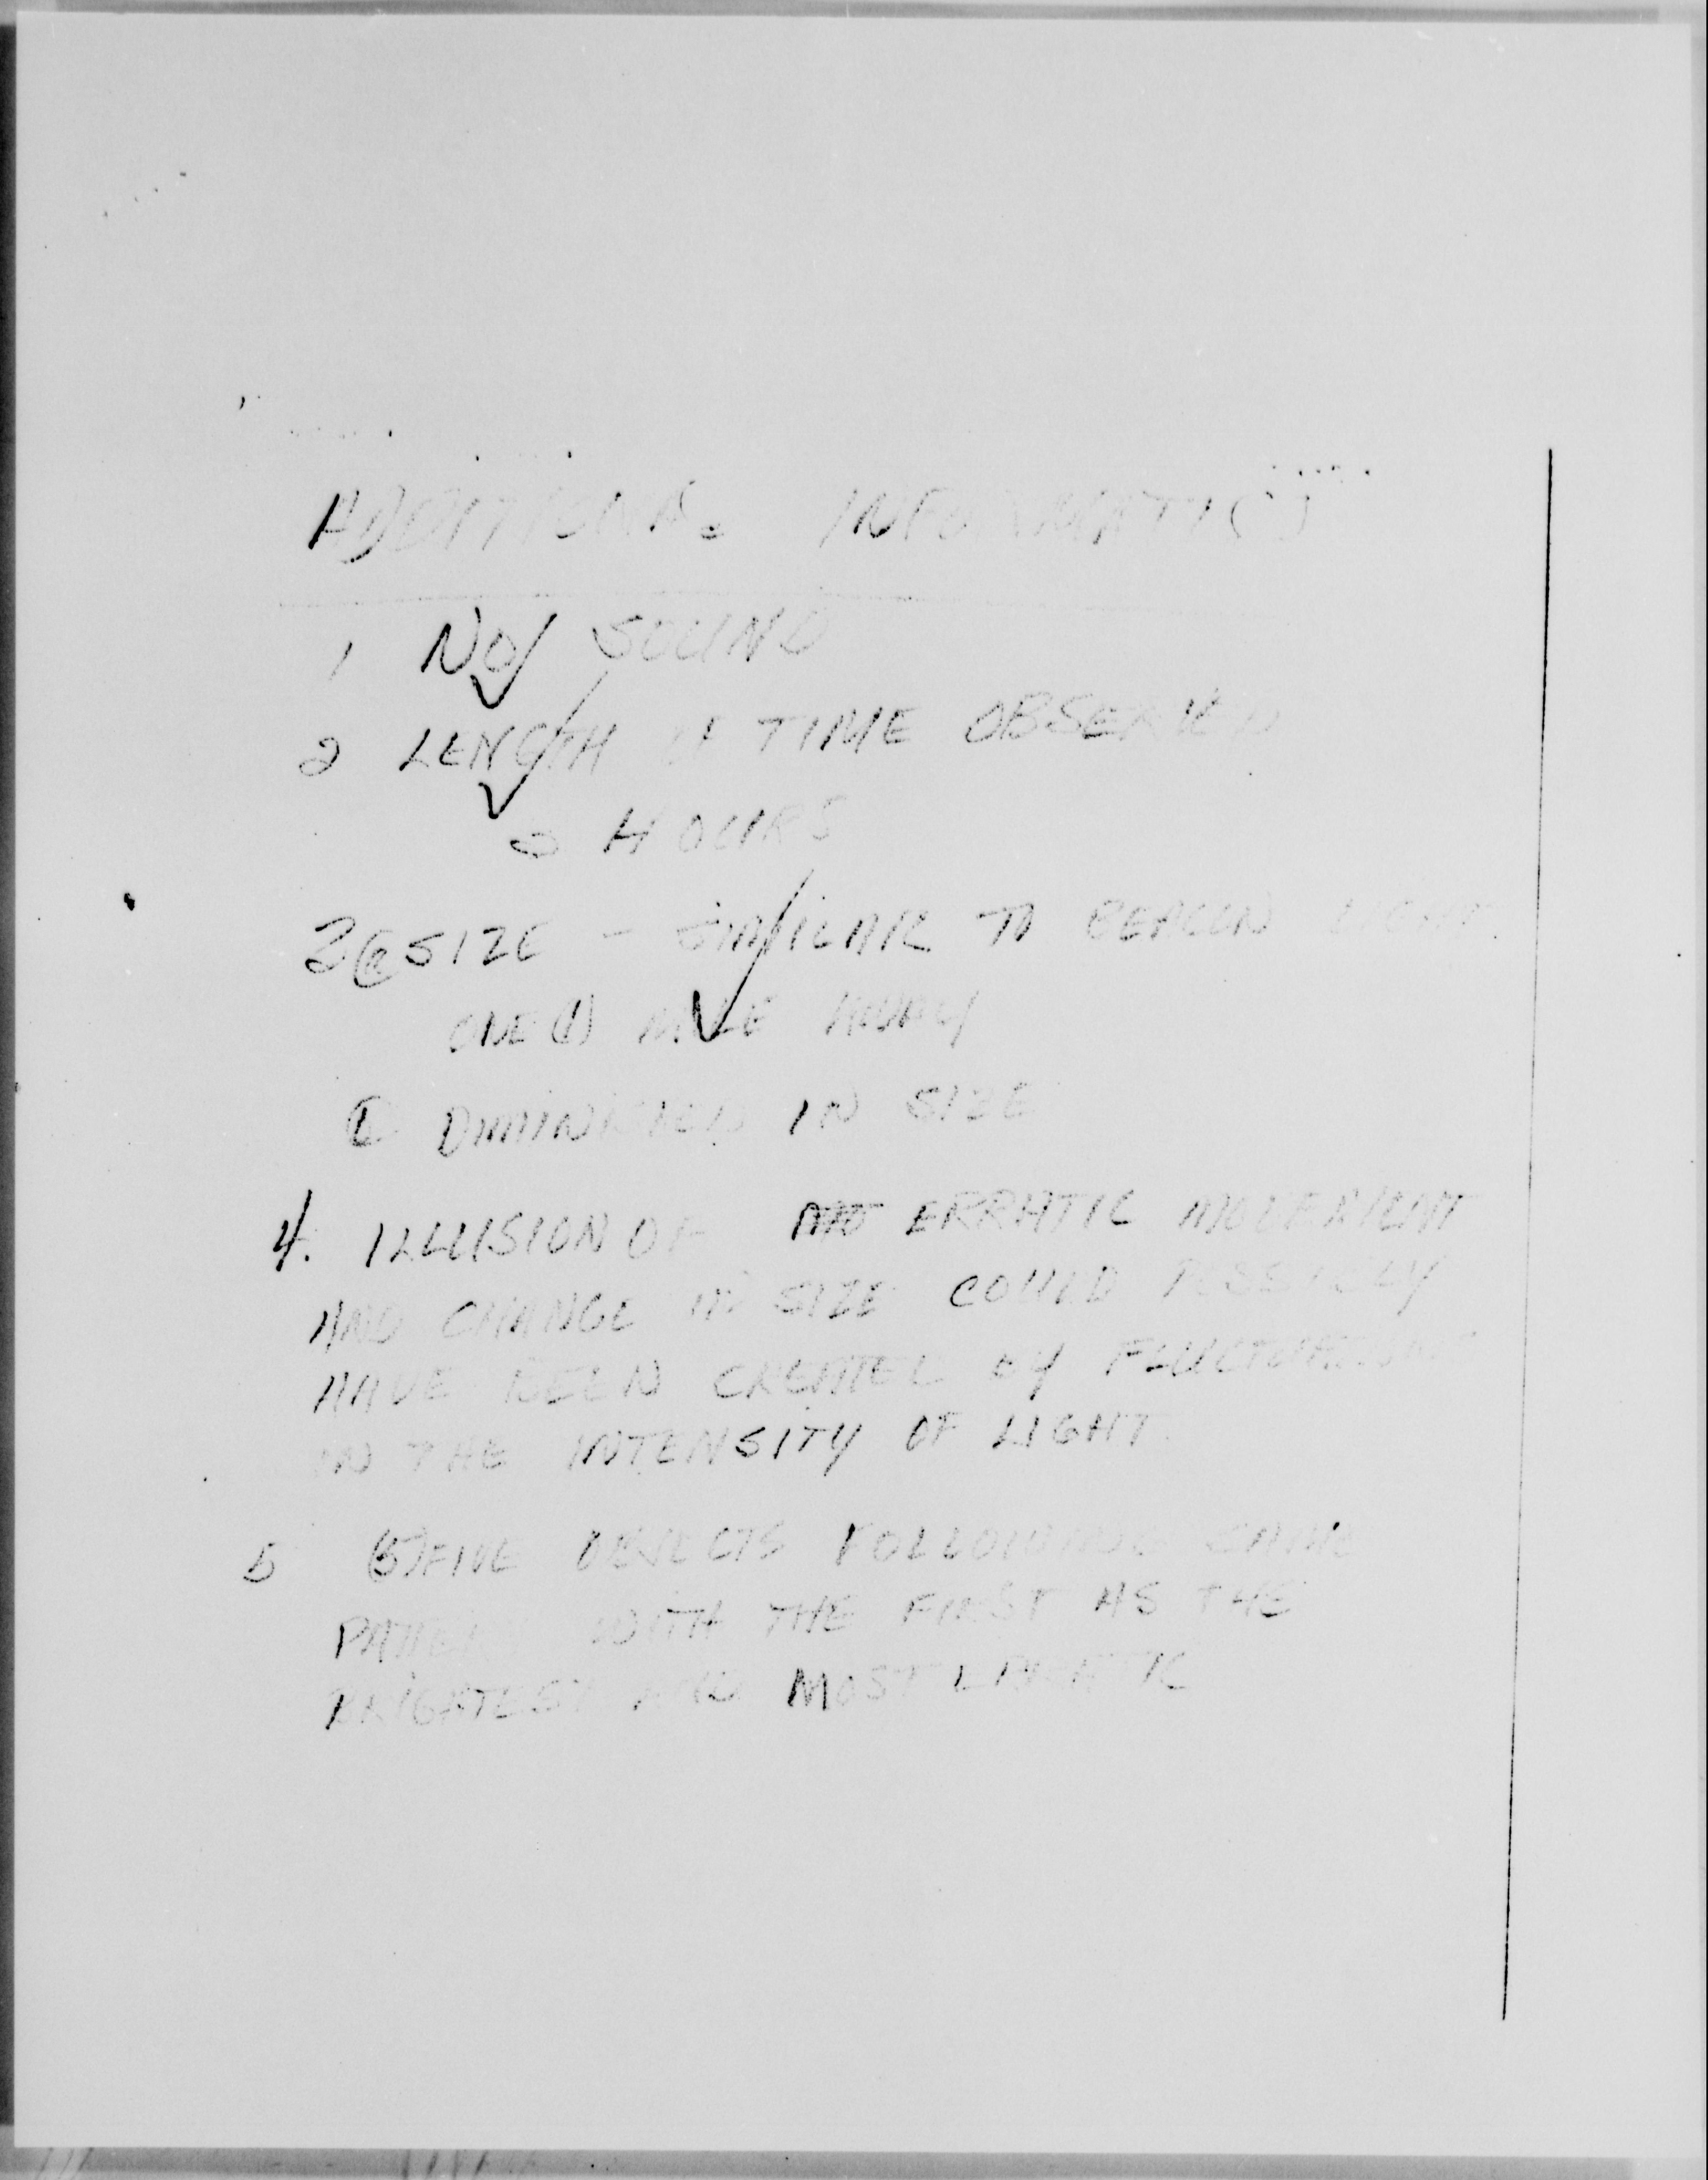 ADDITIONAL INFORMATION
1 NO SOUND
2 LENGTH OF TIME OBSERVED
HOURS
3 @ SIZE - SIMILAR TO BEACON LIGHT
ONE (1) MILE AWAY
DIMINISHED IN SIZE
4. ILLUSION OF ERRATIC MOVEMENT
AND CHANGE IN SIZE COULD POSSIBLY
HAVE BEEN CREATED BY FLUCTUATIONS
IN THE INTENSITY OF LIGHT
5 (5) FIVE OBJECTS FOLLOWING SAME
PATTERN WITH THE FIRST AS THE
BRIGHTEST AND MOST ERRATIC